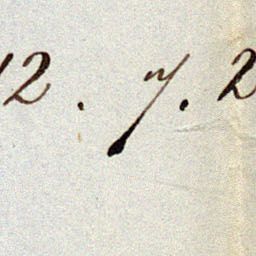 12. 7. 2